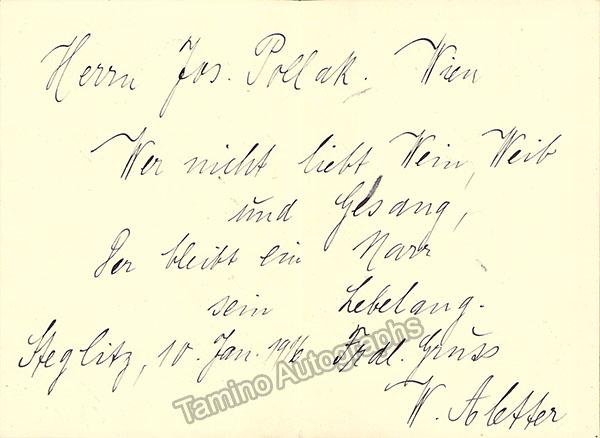 Herrn Jos. Pollak. Wien
Wer nicht liebt Wein, Weib
und Gesang,
Der bleibt ein Narr
sein Lebelang.
Steglitz, 10. Jan. Frdl. Gruss
W. Aletter
Tamino Autographs